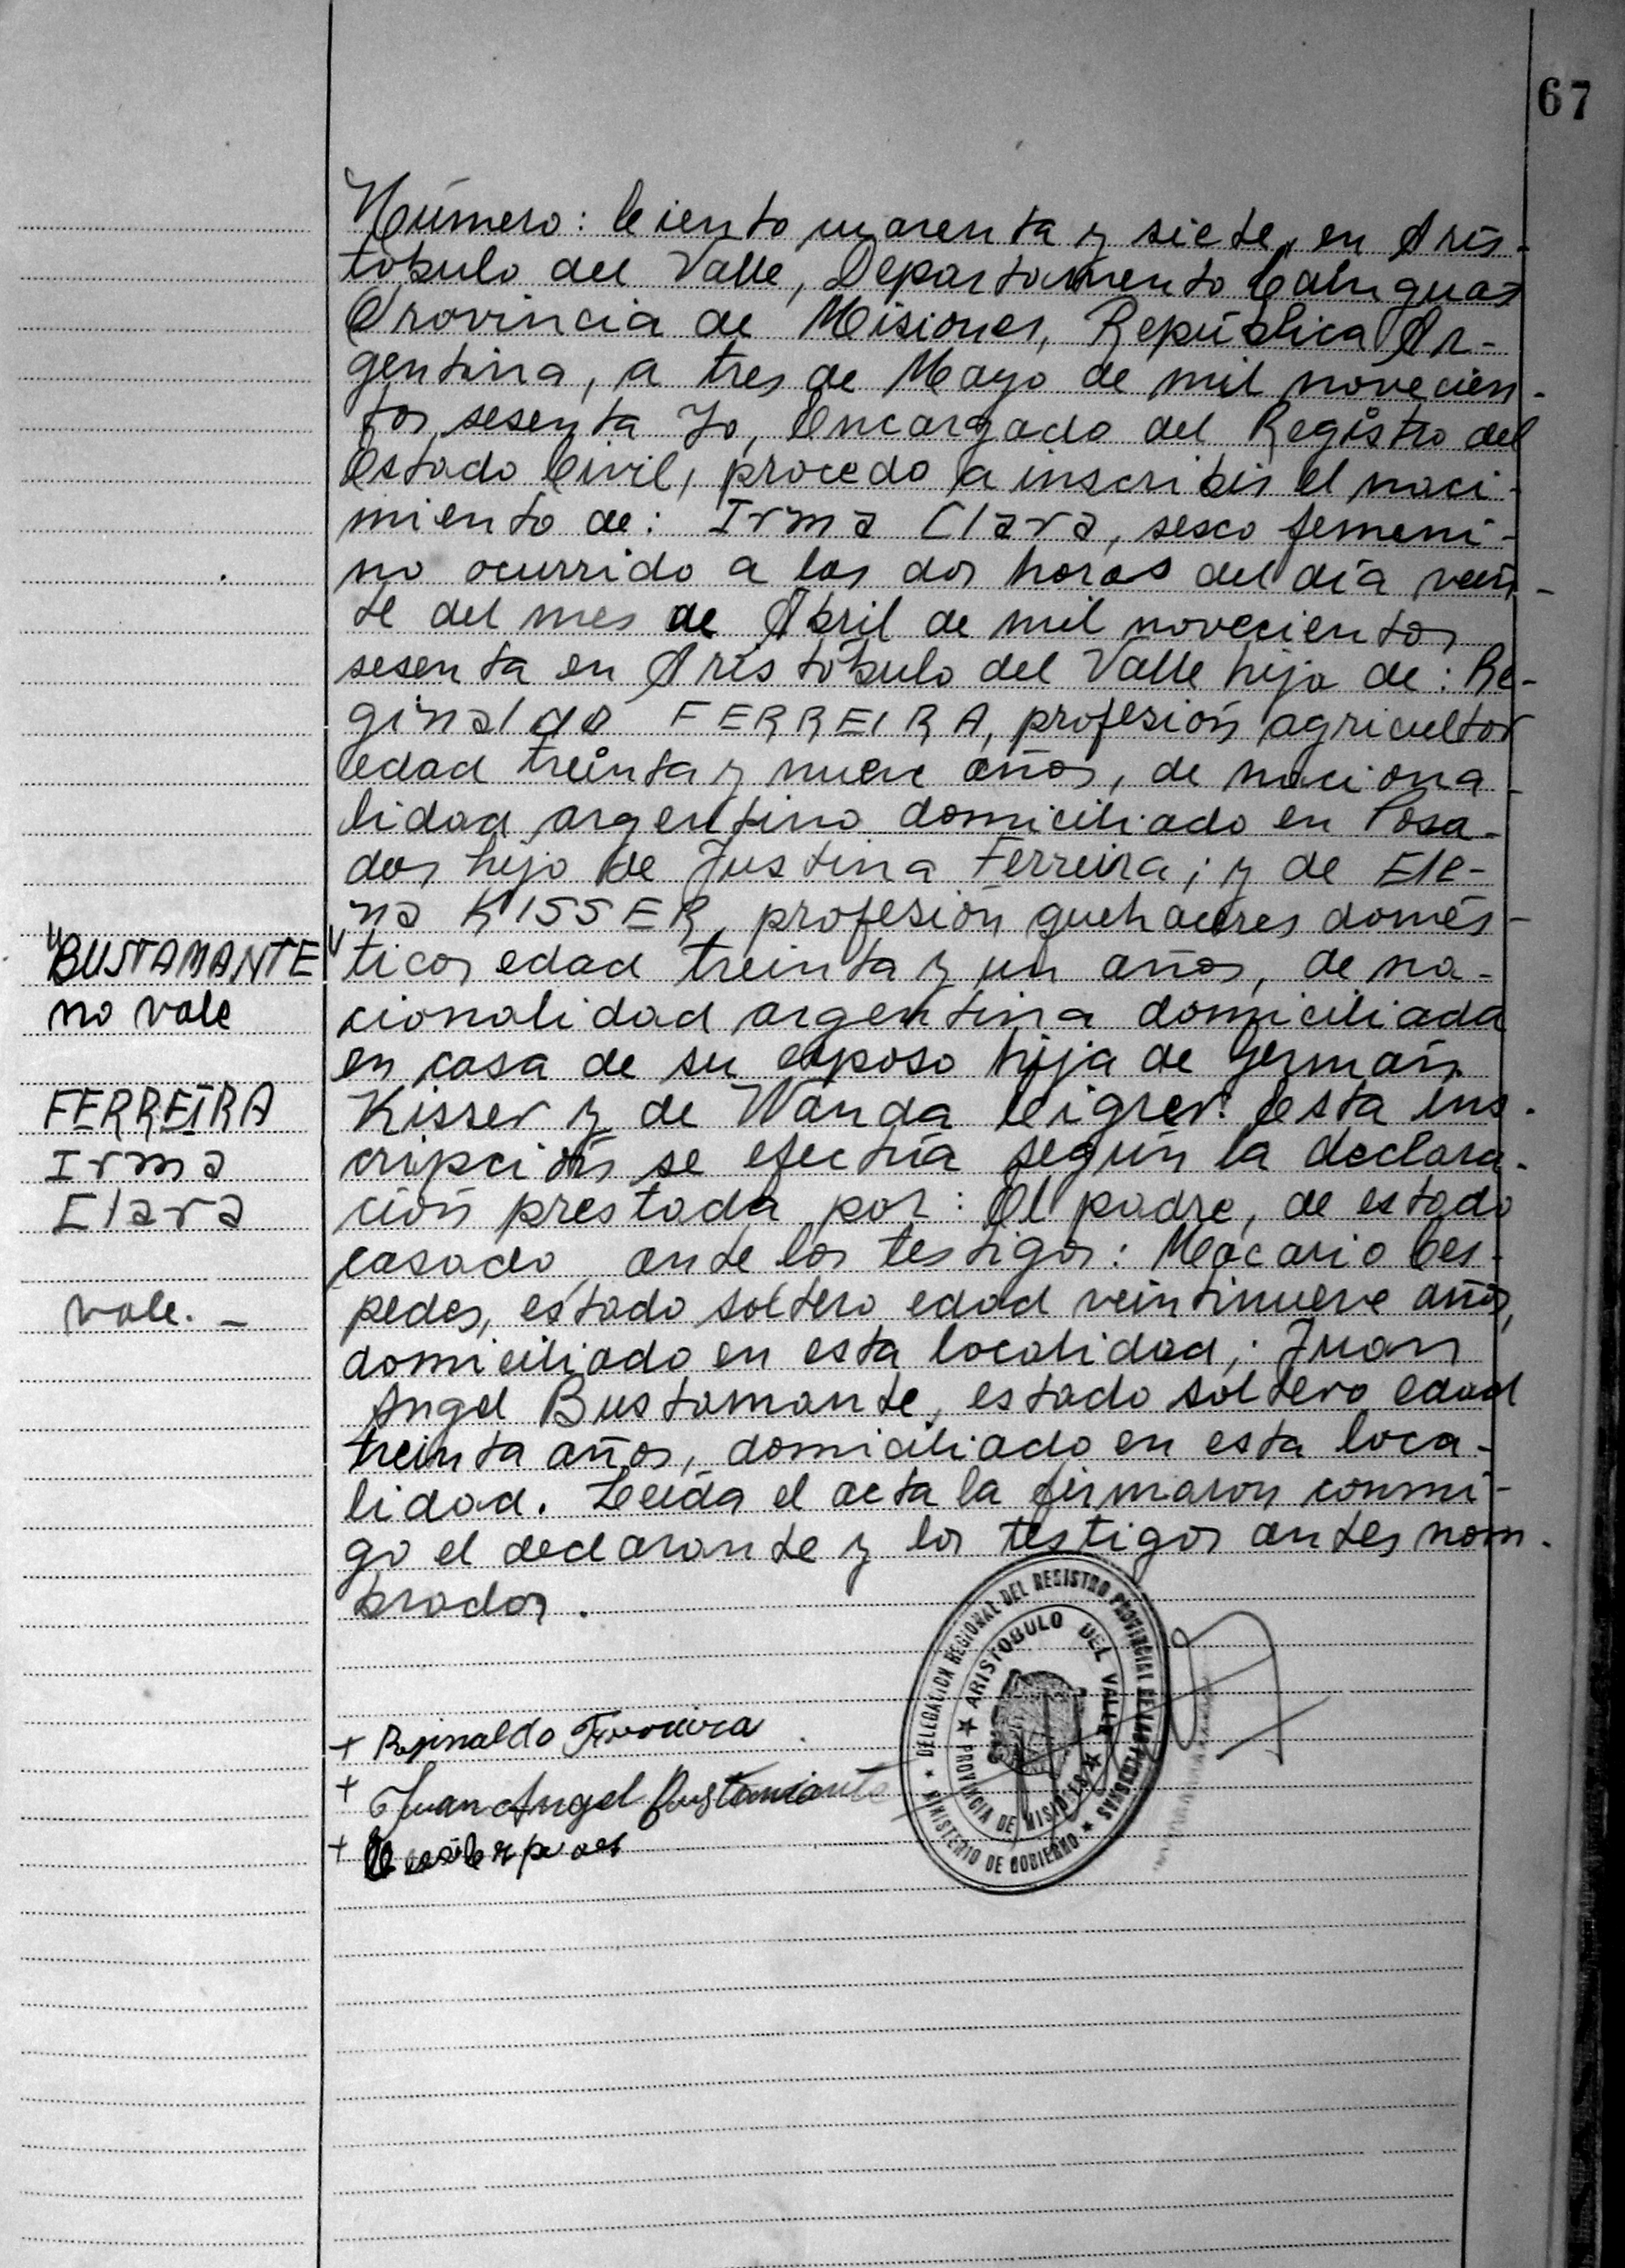 67
Número: Ciento cuarenta y siete, en Aris-
tóbulo del Valle, Departamento Cainguas
Provincia de Misiones, República Ar-
gentina, a tres de Mayo de mil novecien-
tos sesenta Yo, Encargado del Registro del
Estado Civil, procedo a inscribir el naci-
miento de: Irma Clara, sexo femeni-
no ocurrido a las dos horas del día vein-
te del mes de Abril de mil novecientos
sesenta en Aristóbulo del Valle hija de: Re-
ginaldo FERREIRA, profesión agricultor
edad treinta y nueve años, de naciona
lidad argentino domiciliado en Posa-
das hijo de Justina Ferreira; y de Ele-
na KISSER, profesión quehaceres domés-
ticos edad treinta y un años, de na-
cionalidad argentina domiciliada
en casa de su esposo hija de Germán
Kisser y de Wanda Ceigrer. Esta ins-
cripción se efectúa según la declara-
ción prestada por: El padre, de estado
casado ante los testigos: Macario Ces-
pedes, estado soltero edad veintinueve años,
domiciliado en esta localidad; Juan
Angel Bustamante, estado soltero edad
treinta años, domiciliado en esta loca-
lidad. Leída el acta la firmaron conmi-
go el declarante y los testigos antes nom-
brados.
BUSTAMANTE
no vale
FERREIRA
Irma
Clara
vale. -
+ Reginaldo Ferreira
+ Juan Angel Bustamante
+
DELEGACION REGIONAL DEL REGISTRO PROVINCIAL DE LAS PERSONAS
★ ARISTOBULO DEL VALLE ★
PROVINCIA DE MISIONES
★ MINISTERIO DE GOBIERNO ★